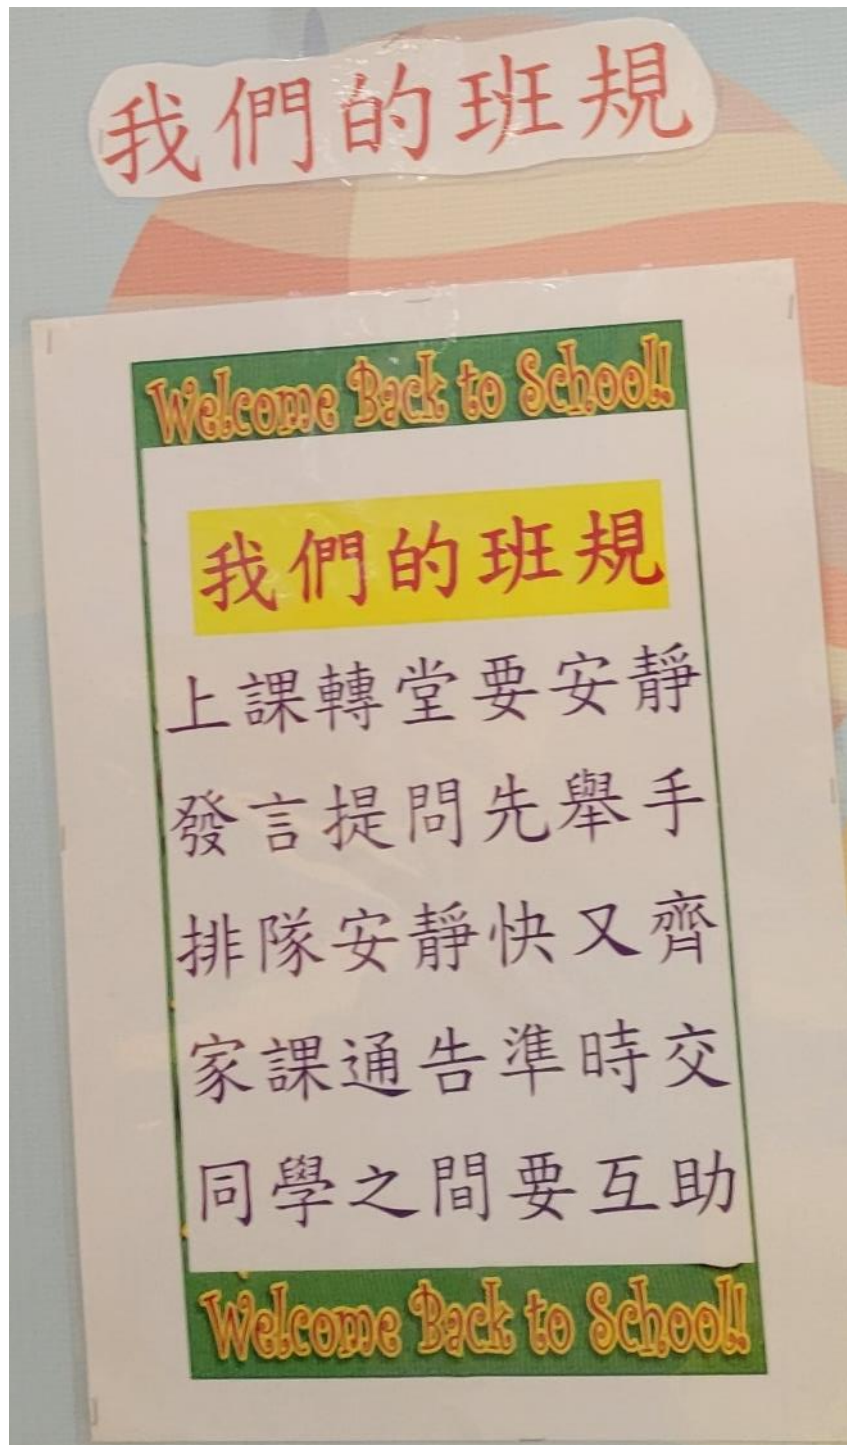 我們的班規
Welcome Back to School!
我們的班規
上課轉堂要安靜
發言提問先舉手
排隊安靜快又齊
家課通告準時交
同學之間要互助
Welcome Back to School!